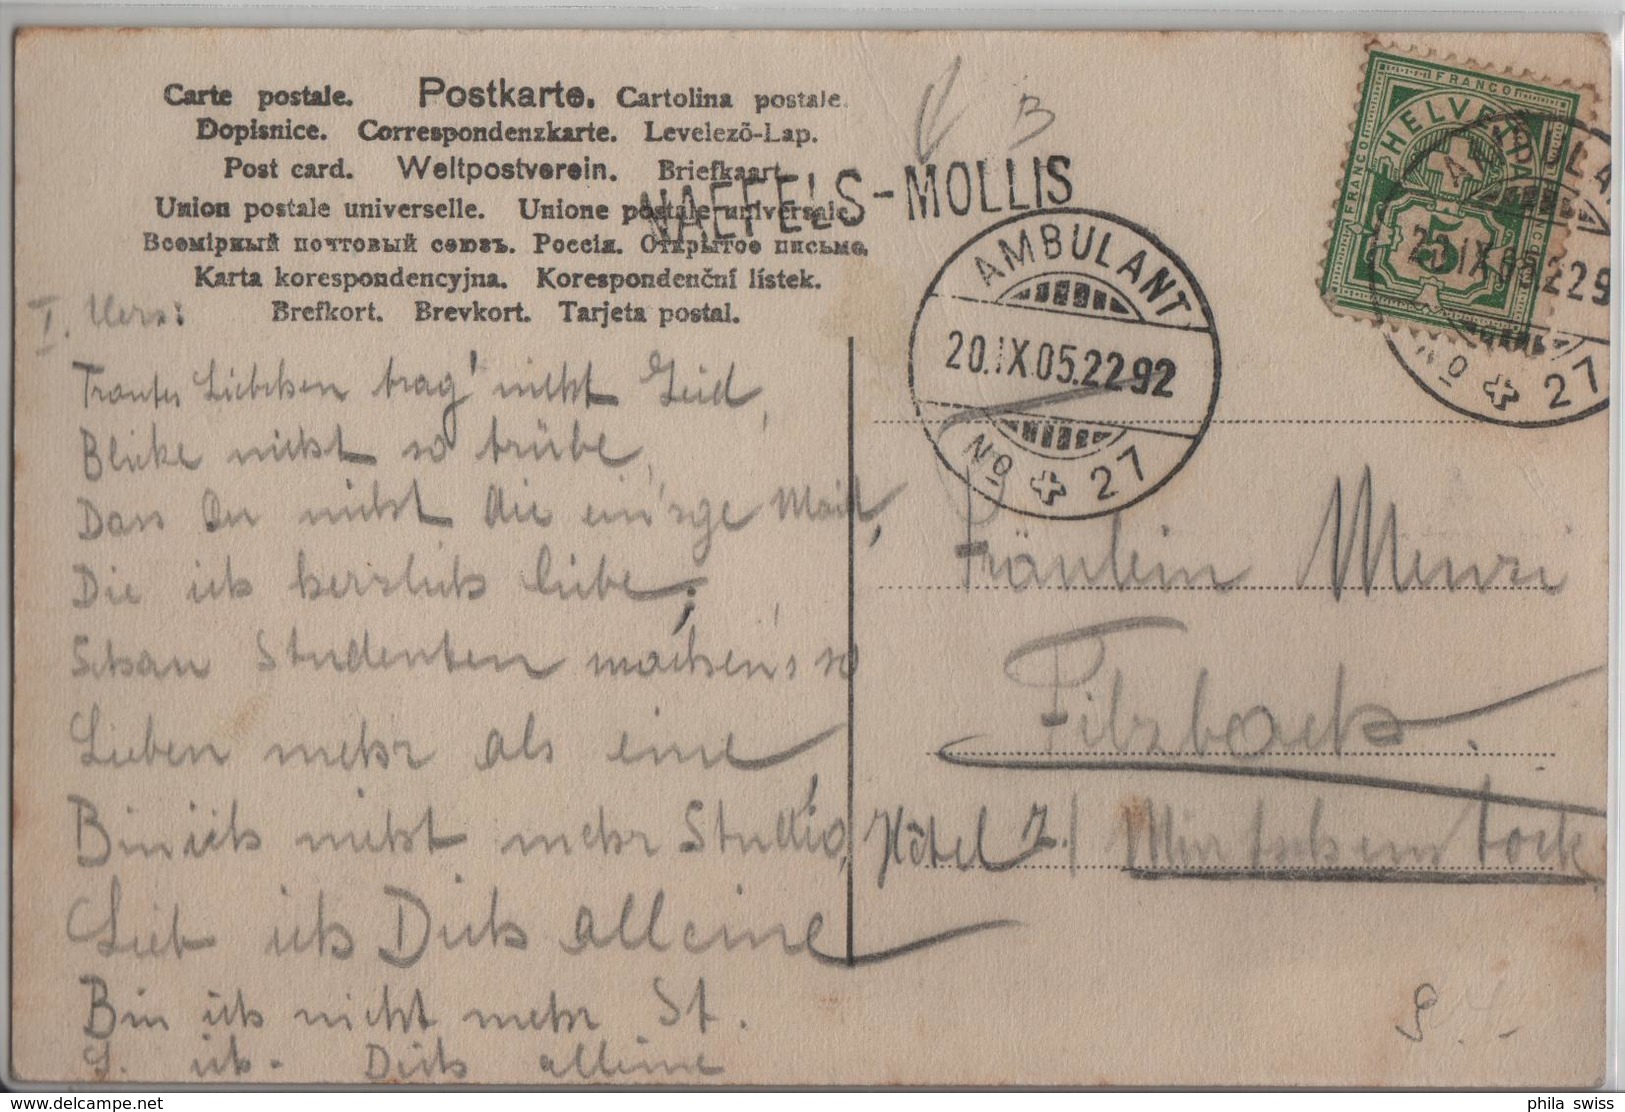 Carte postale. Postkarte. Cartolina postale.
Dopisnice. Correspondenzkarte. Levelezõ-Lap.
Post card. Weltpostverein. Briefkaart.
Union postale universelle. Unione postale universale.
Всемірный почтовый союзъ. Россія. Открытое письмо.
Karta korespondencyjna. Korespondenční lístek.
Brefkort. Brevkort. Tarjeta postal.
NAEFELS-MOLLIS
FRANCO
HELVETIA
FRANCO
FRANCO
5
AMBULANT
20.IX.05.2292
No 27
AMBULANT
20.IX.05.229
No 27
I. Vers:
Trautes Liebchen trag' nicht Leid,
Blicke nicht so trübe,
Dass Du nicht die ein'zge Maid,
Die ich herzlich liebe;
Schau Studenten machen's so
Lieben mehr als eine,
Bin ich nicht mehr Studio,
Lieb ich Dich alleine
Bin ich nicht mehr St.
L. ich - Dich alleine
Fräulein Menzi
Filzbach.
Hôtel z. Mürtschenstock
phila swiss
www.delcampe.net